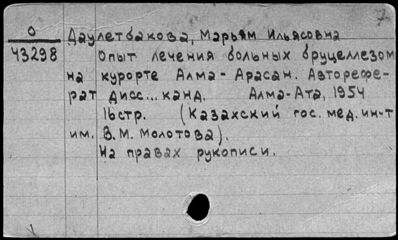 О
43298
Даулетбакова, Марьям Ильясовна
Опыт лечения больных бруцеллезом
на курорте Алма-Арасан. Авторефе-
рат дисс... канд. Алма-Ата, 1954
16стр. (Казахский гос. мед. ин-т
им. В.М. Молотова).
На правах рукописи.